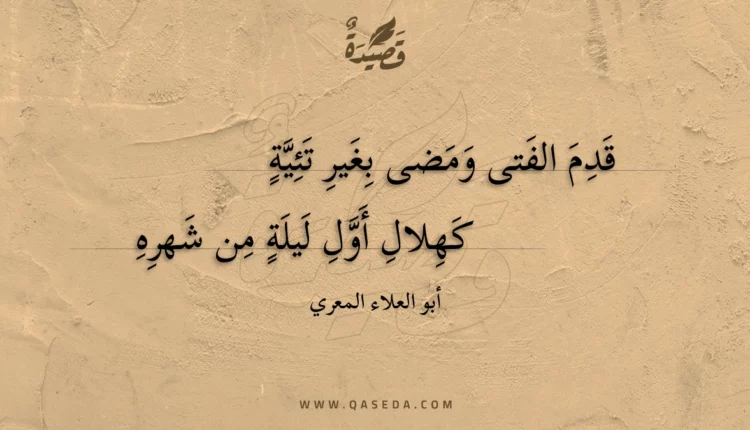 قَصِيدَةٌ
قَدِمَ الفَتى وَمَضى بِغَيرِ تَئِيَّةٍ
كَهِلالِ أَوَّلِ لَيلَةٍ مِن شَهرِهِ
أبو العلاء المعري
WWW.QASEDA.COM